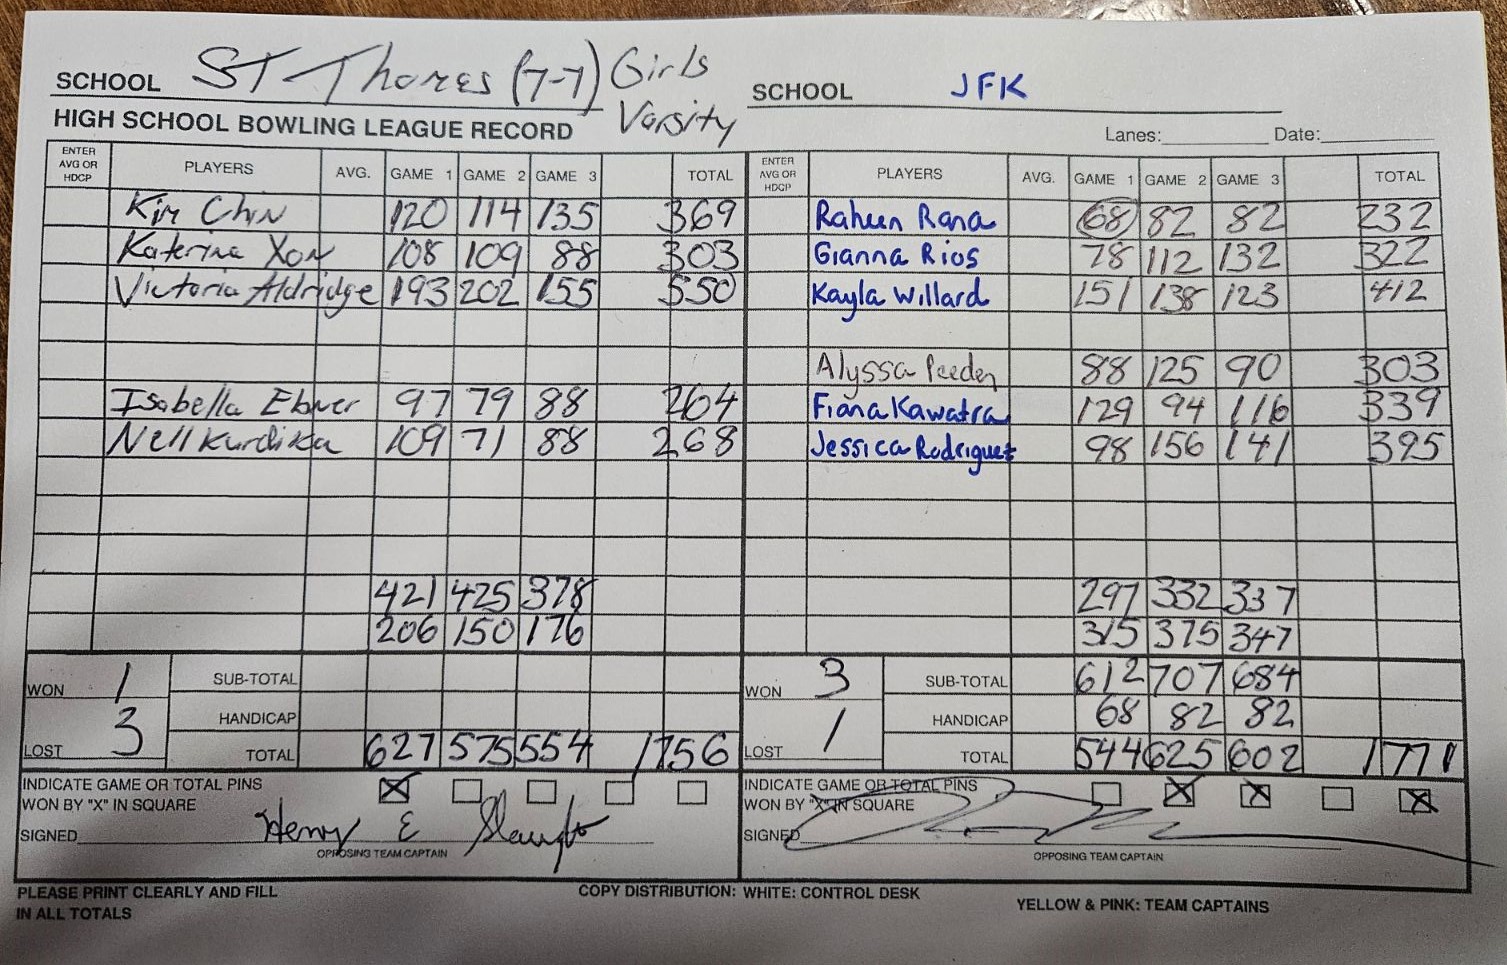 SCHOOL ST Thomas (7-7) Girls Varsity SCHOOL JFK
HIGH SCHOOL BOWLING LEAGUE RECORD Lanes: Date:
ENTER AVG OR HDCP PLAYERS AVG. GAME 1 GAME 2 GAME 3 TOTAL ENTER AVG OR HDCP PLAYERS AVG. GAME 1 GAME 2 GAME 3 TOTAL
Kim Chin 120 114 135 369 Raheen Rana 68 82 82 232
Katerina Xon 108 109 88 303 Gianna Rios 78 112 132 322
Victoria Aldridge 193 202 155 550 Kayla Willard 151 138 123 412
Alyssa Peeden 88 125 90 303
Isabella Ebner 97 79 88 264 Fiona Kawatra 129 94 116 339
Nell Kurdika 109 71 88 268 Jessica Rodriguez 98 156 141 395
421 425 378 297 332 337
206 150 176 315 375 347
WON 1 SUB-TOTAL WON 3 SUB-TOTAL 612 707 684
LOST 3 HANDICAP LOST 1 HANDICAP 68 82 82
TOTAL 627 575 554 1756 TOTAL 544 625 602 1771
INDICATE GAME OR TOTAL PINS X INDICATE GAME OR TOTAL PINS X X X
WON BY "X" IN SQUARE WON BY "X" IN SQUARE
SIGNED Henry E SIGNED
OPPOSING TEAM CAPTAIN OPPOSING TEAM CAPTAIN
PLEASE PRINT CLEARLY AND FILL COPY DISTRIBUTION: WHITE: CONTROL DESK YELLOW & PINK: TEAM CAPTAINS
IN ALL TOTALS